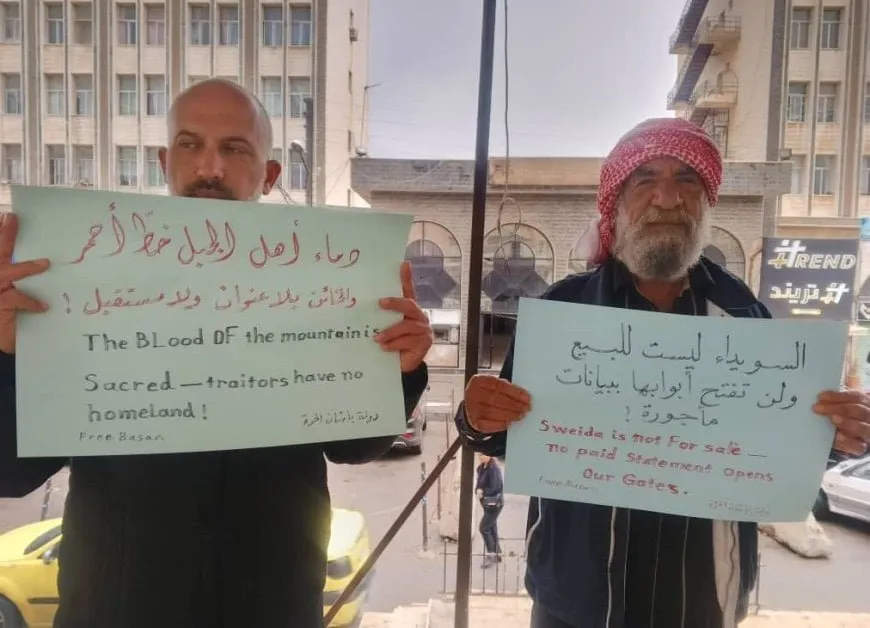 دماء أهل الجبل خطّ أحمر
والخائن بلا عنوان ولا مستقبل !
The BLood OF the mountain is
Sacred — traitors have no
homeland !
Free Basan
دولة باشان الحرة
السويداء ليست للبيع
ولن تفتح أبوابها ببيانات
مأجورة !
Sweida is not For sale —
no paid Statement opens
Our Gates.
TREND
تريند